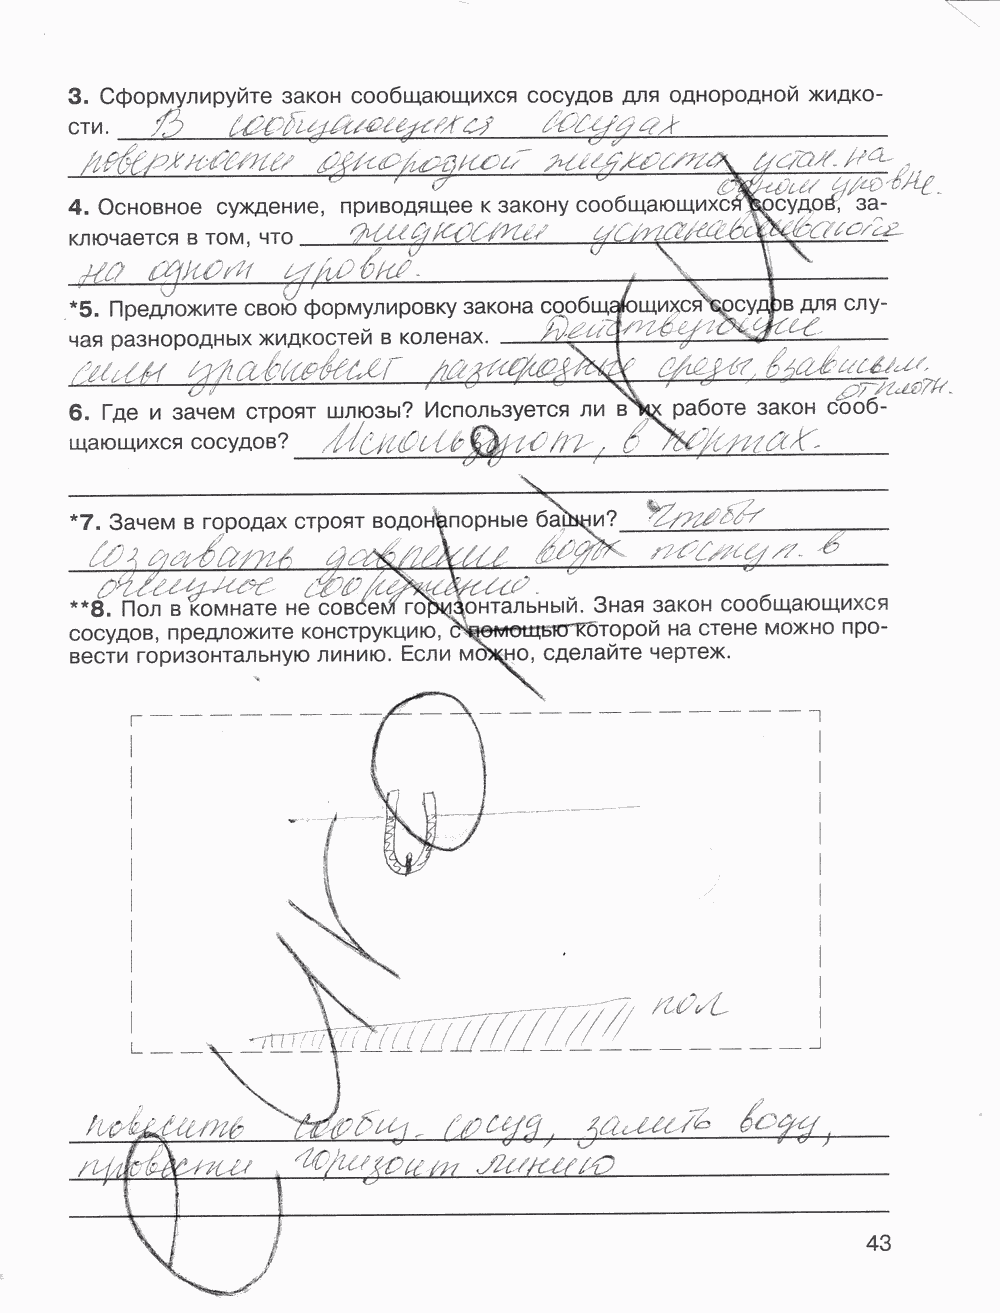 3. Сформулируйте закон сообщающихся сосудов для однородной жидко-
сти. В сообщающихся сосудах
поверхности однородной жидкости устан. на
одном уровне.
4. Основное суждение, приводящее к закону сообщающихся сосудов, за-
ключается в том, что жидкости устанавливаются
на одном уровне.
*5. Предложите свою формулировку закона сообщающихся сосудов для слу-
чая разнородных жидкостей в коленах. Действующие
силы уравновесят разнородные среды, взависим.
от плотн.
6. Где и зачем строят шлюзы? Используется ли в их работе закон сооб-
щающихся сосудов? Используют, в портах.
*7. Зачем в городах строят водонапорные башни? Чтобы
создавать давление воды поступ. в
очищное сооружение.
**8. Пол в комнате не совсем горизонтальный. Зная закон сообщающихся
сосудов, предложите конструкцию, с помощью которой на стене можно про-
вести горизонтальную линию. Если можно, сделайте чертеж.
пол
повесить сообщ. сосуд, залить воду,
провести горизонт линию
43